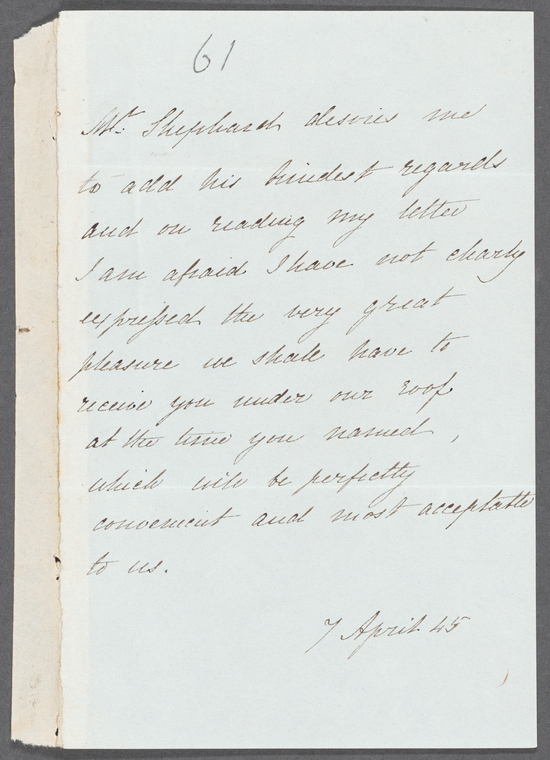 61
Mr. Shephard desires me
to add his kindest regards
and on reading my letter
I am afraid I have not clearly
expressed the very great
pleasure we shall have to
receive you under our roof
at the time you named,
which will be perfectly
convenient and most acceptable
to us.
7 April 45